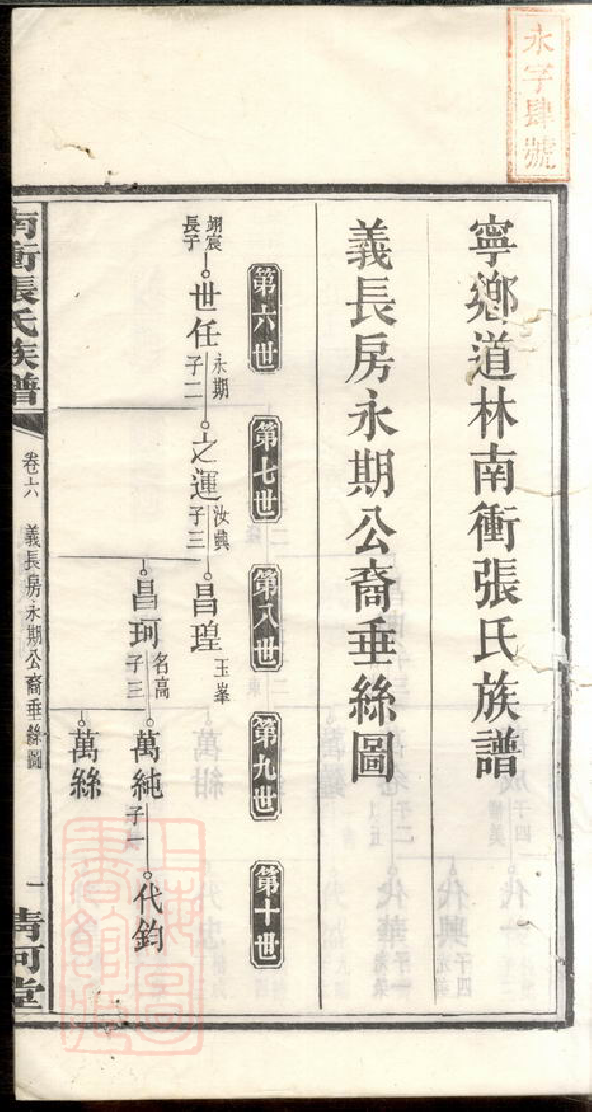 永字肆號
寧鄉道林南衝張氏族譜
義長房永期公裔垂絲圖
第六世
第七世
第八世
第九世
第十世
翊宸
長子
世任
永期
子二
之運
汝典
子三
昌瑝
玉峯
昌珂
名高
子三
萬純
子一
代鈞
萬絲
南衝張氏族譜
卷六
義長房永期公裔垂絲圖
一
清河堂
上海圖書館藏